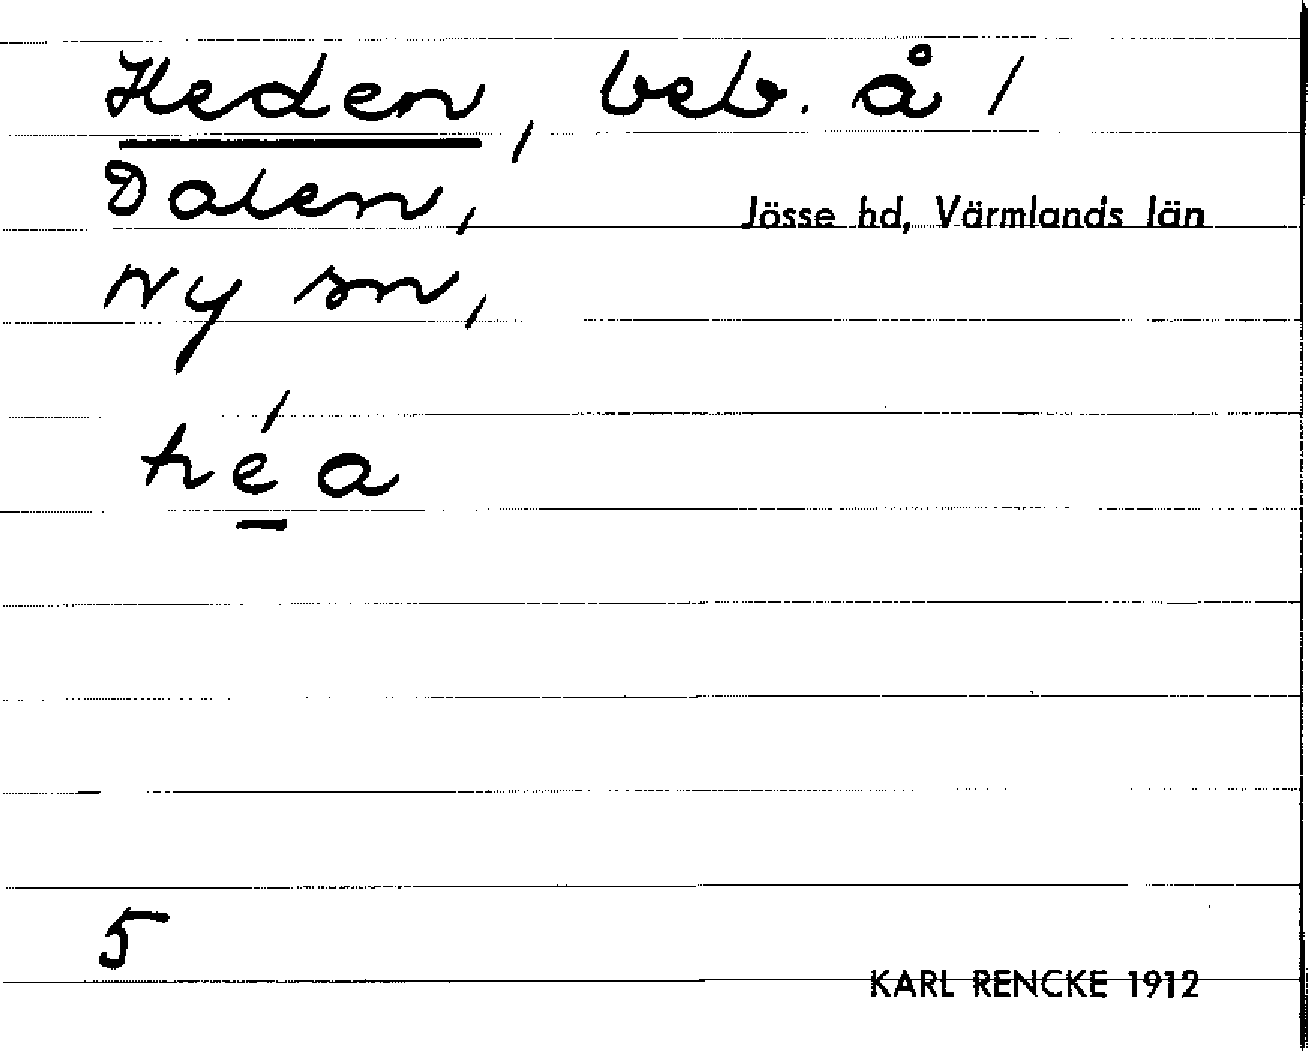 Heden, beb. å /
Dalen,
Jösse hd, Värmlands län
Ny sn,
hé̲a
5
KARL RENCKE 1912